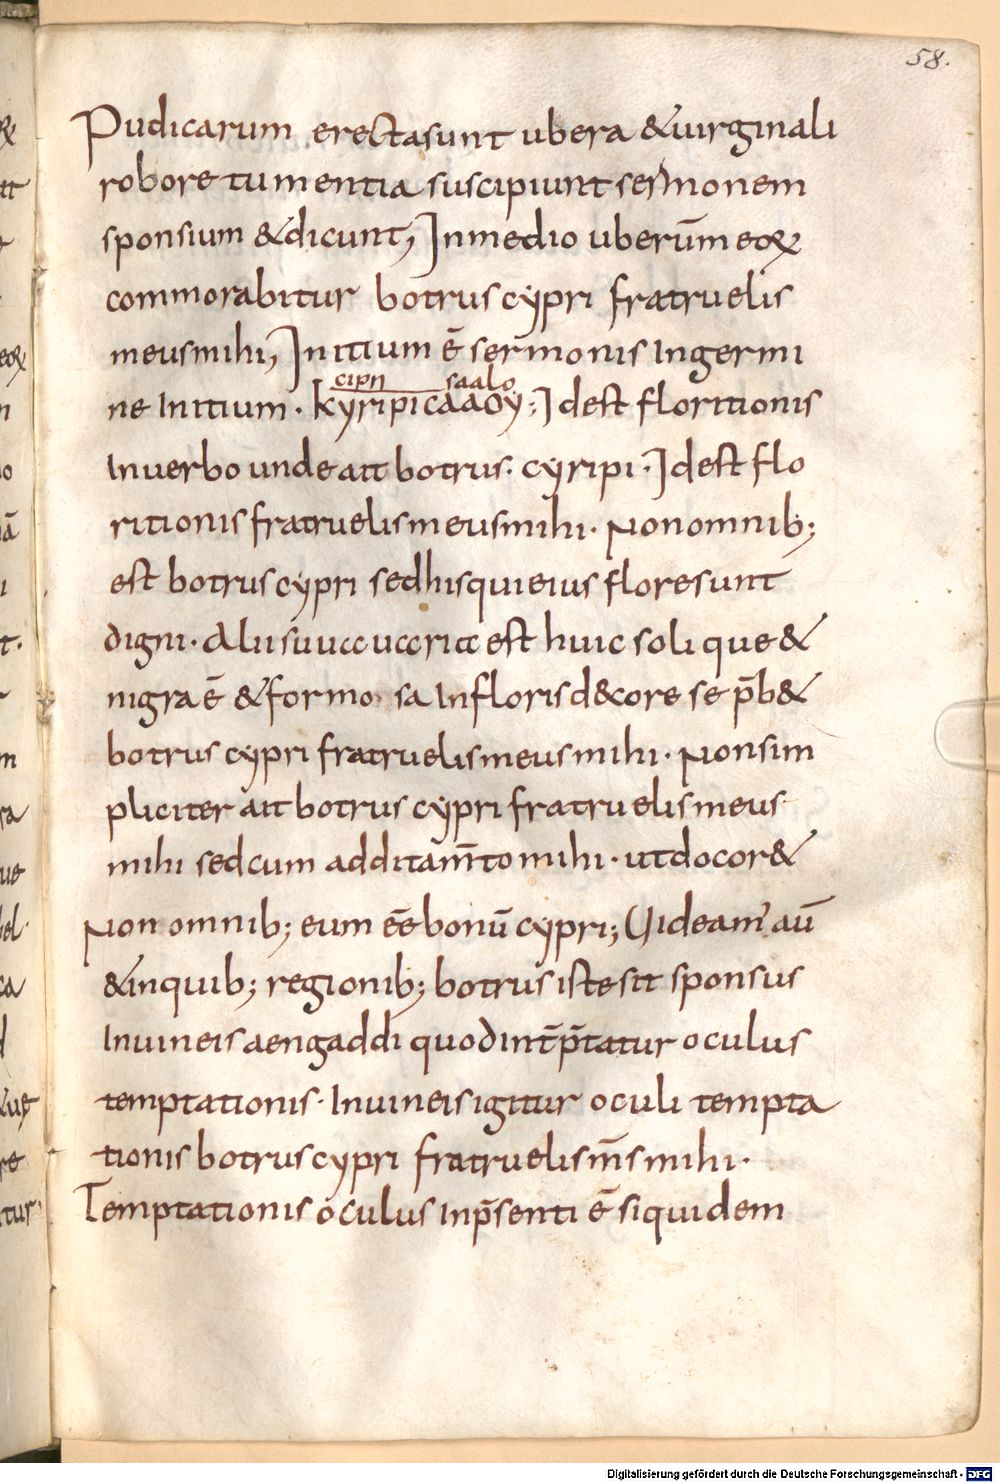 58.
Pudicarum erectasunt ubera &uirginali
robore tumentia suscipiunt sermonem
sponsium &dicunt, Inmedio uberūm eoꝝ
commorabitur botrus cypri fratruelis
meusmihi, Initium ē sermonis Ingermi
cipri saalo
ne Initium· kyripicaaoy; Idest floritionis
Inuerbo unde ait botrus· cyripi· Idest flo
ritionis fratruelis meusmihi· Nonomnib;
est botrus cypri sed hisqui eius flore sunt
digni· Alii suuccuccricc est huic soli que &
nigra ē &formo sa Infloris d&core se p̄b&
botrus cypri fratruelis meus mihi· Nonsim
pliciter ait botrus cypri fratruelis meus
mihi sedcum additam̄to mihi· utdocor&
Non omnib; eum eē bonū cypri; Uideam' aū
&inquib; regionib; botrus iste sit sponsus
Inuineis aengaddi quod int̄p̄tatur oculus
temptationis· Inuineis igitur oculi tempta
tionis botrus cypri fratruelis m̄s mihi·
Temptationis oculus Inp̄senti ē siquidem
Digitalisierung gefördert durch die Deutsche Forschungsgemeinschaft - DFG